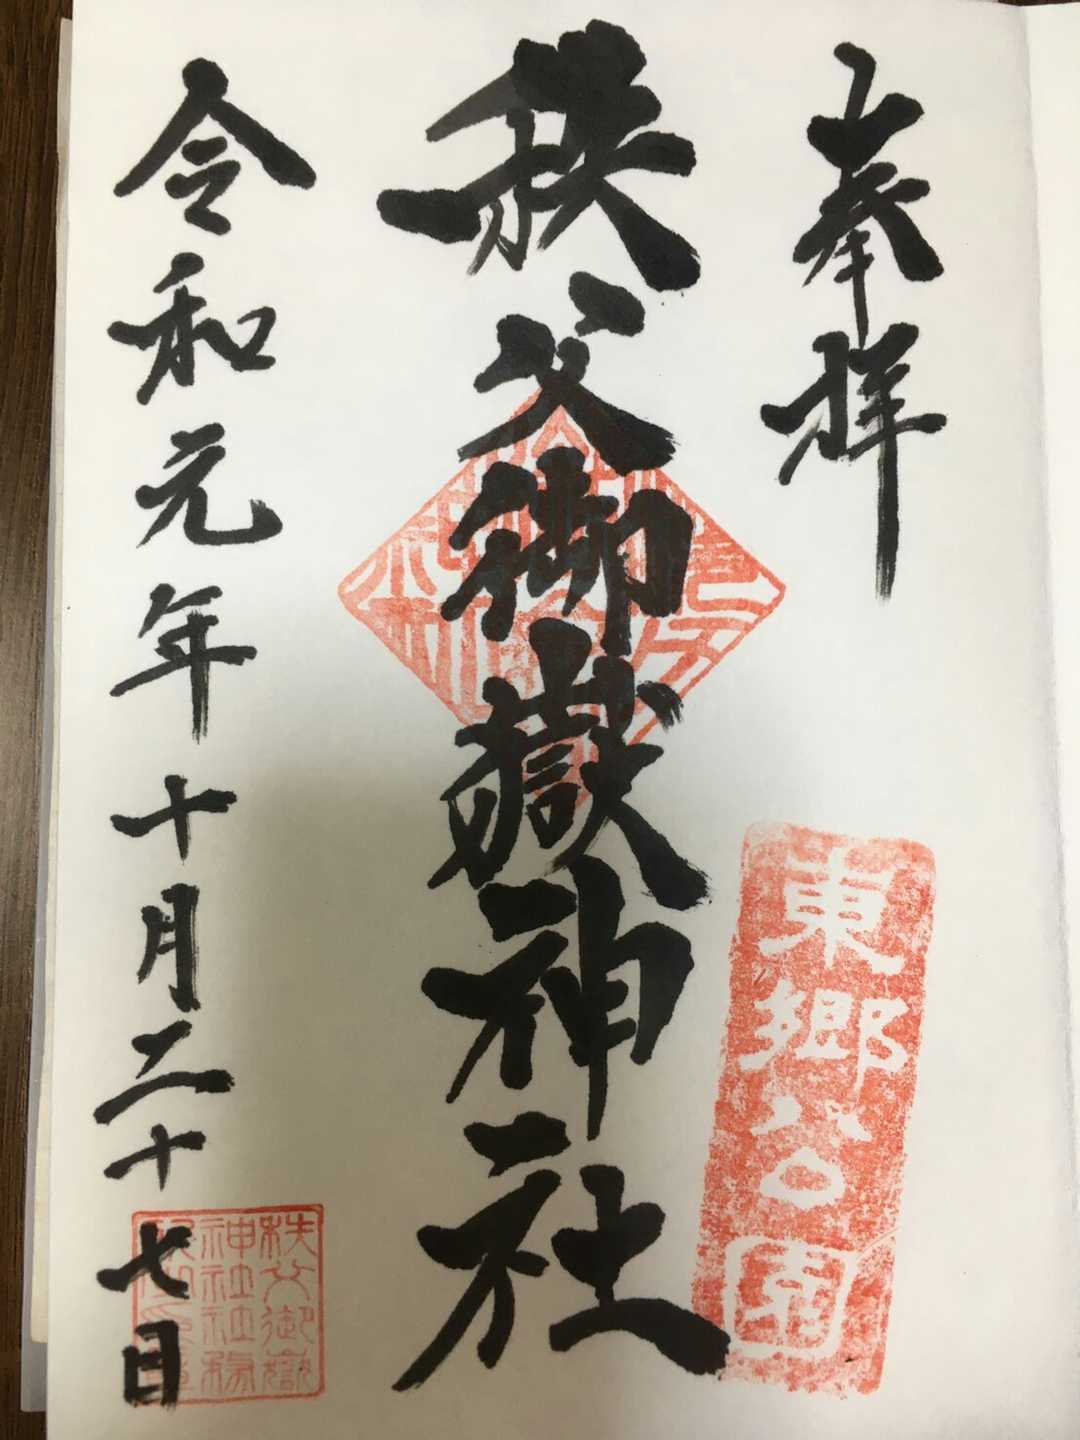 奉拝
東郷公園
秩父御嶽神社
令和元年十月二十七日
秩父御嶽
神社社務